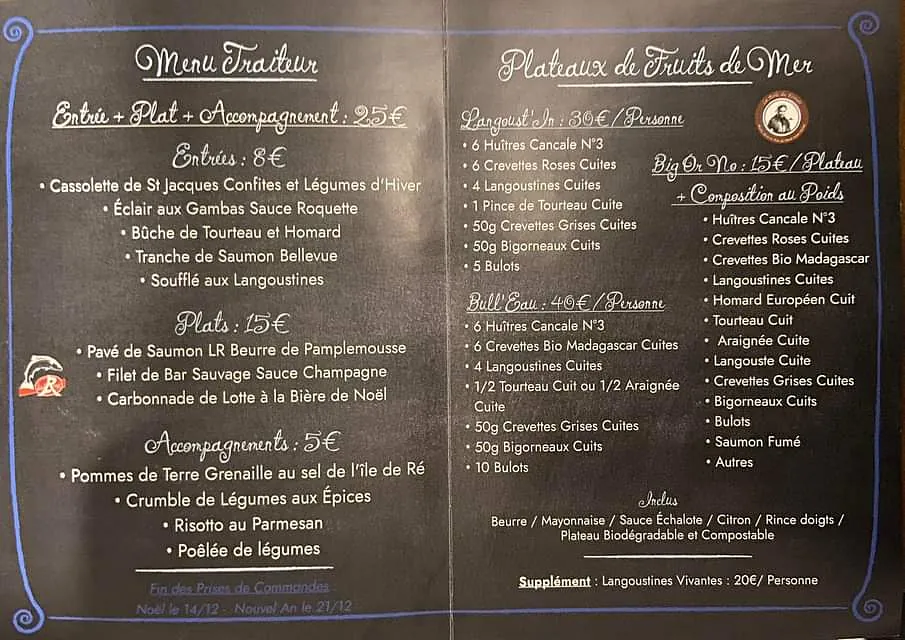 Menu Traiteur
Entrée + Plat + Accompagnement : 25€
Entrées : 8€
• Cassolette de St Jacques Confites et Légumes d'Hiver
• Éclair aux Gambas Sauce Roquette
• Bûche de Tourteau et Homard
• Tranche de Saumon Bellevue
• Soufflé aux Langoustines
Plats : 15€
• Pavé de Saumon LR Beurre de Pamplemousse
• Filet de Bar Sauvage Sauce Champagne
• Carbonnade de Lotte à la Bière de Noël
Accompagnements : 5€
• Pommes de Terre Grenaille au sel de l'île de Ré
• Crumble de Légumes aux Épices
• Risotto au Parmesan
• Poêlée de légumes
Fin des Prises de Commandes
Noël le 14/12 - Nouvel An le 21/12
Plateaux de Fruits de Mer
Langoust'In : 30€/Personne
• 6 Huîtres Cancale N°3
• 6 Crevettes Roses Cuites
• 4 Langoustines Cuites
• 1 Pince de Tourteau Cuite
• 50g Crevettes Grises Cuites
• 50g Bigorneaux Cuits
• 5 Bulots
Bull'Eau : 40€/Personne
• 6 Huîtres Cancale N°3
• 6 Crevettes Bio Madagascar Cuites
• 4 Langoustines Cuites
• 1/2 Tourteau Cuit ou 1/2 Araignée
Cuite
• 50g Crevettes Grises Cuites
• 50g Bigorneaux Cuits
• 10 Bulots
Big Or No : 15€/Plateau
+ Composition au Poids
• Huîtres Cancale N°3
• Crevettes Roses Cuites
• Crevettes Bio Madagascar
• Langoustines Cuites
• Homard Européen Cuit
• Tourteau Cuit
• Araignée Cuite
• Langouste Cuite
• Crevettes Grises Cuites
• Bigorneaux Cuits
• Bulots
• Saumon Fumé
• Autres
Inclus
Beurre / Mayonnaise / Sauce Échalote / Citron / Rince doigts /
Plateau Biodégradable et Compostable
Supplément : Langoustines Vivantes : 20€/ Personne